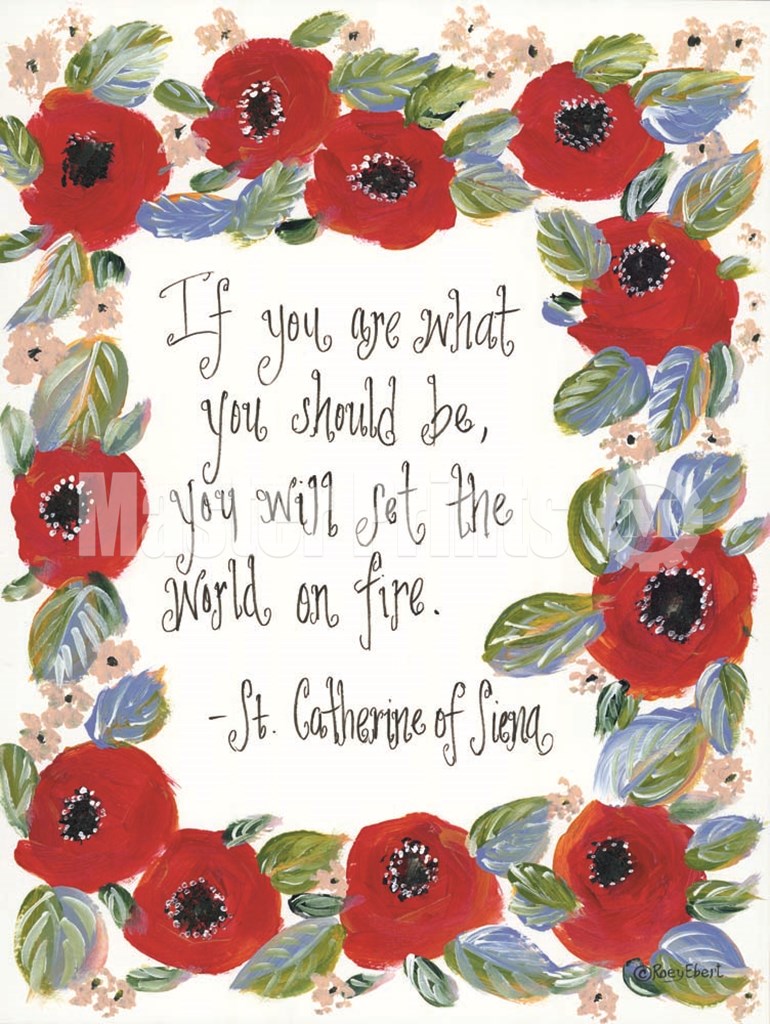 If you are what
you should be,
you will set the
World on fire.
-St. Catherine of Siena
Master Prints
©Roey Ebert